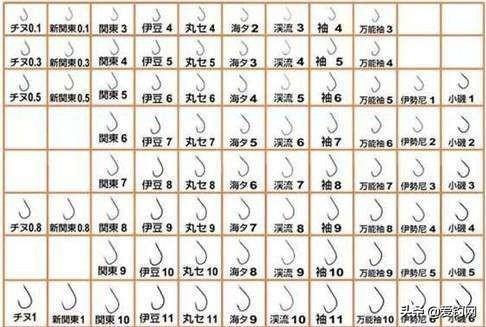 チヌ0.1 新関東0.1 関東 3 伊豆 4 丸セ 4 海タ 2 渓流 3 袖 4 万能袖 3
チヌ0.3 新関東0.3 関東 4 伊豆 5 丸セ 5 海タ 3 渓流 4 袖 5 万能袖 4
チヌ0.5 新関東0.5 関東 5 伊豆 6 丸セ 6 海タ 4 渓流 5 袖 6 万能袖 5 伊勢尼 1 小磯 1
関東 6 伊豆 7 丸セ 7 海タ 5 渓流 6 袖 7 万能袖 6 伊勢尼 2 小磯 2
関東 7 伊豆 8 丸セ 8 海タ 6 渓流 7 袖 8 万能袖 7 伊勢尼 3 小磯 3
チヌ0.8 新関東0.8 関東 8 伊豆 9 丸セ 9 海タ 7 渓流 8 袖 9 万能袖 8 伊勢尼 4 小磯 4
関東 9 伊豆 10 丸セ 10 海タ 8 渓流 9 袖 10 万能袖 9 伊勢尼 5 小磯 5
チヌ1 新関東1 関東 10 伊豆 11 丸セ 11 海タ 9 渓流 10 袖 11 万能袖 10 伊勢尼 6 小磯 6
头条 @爱钓网